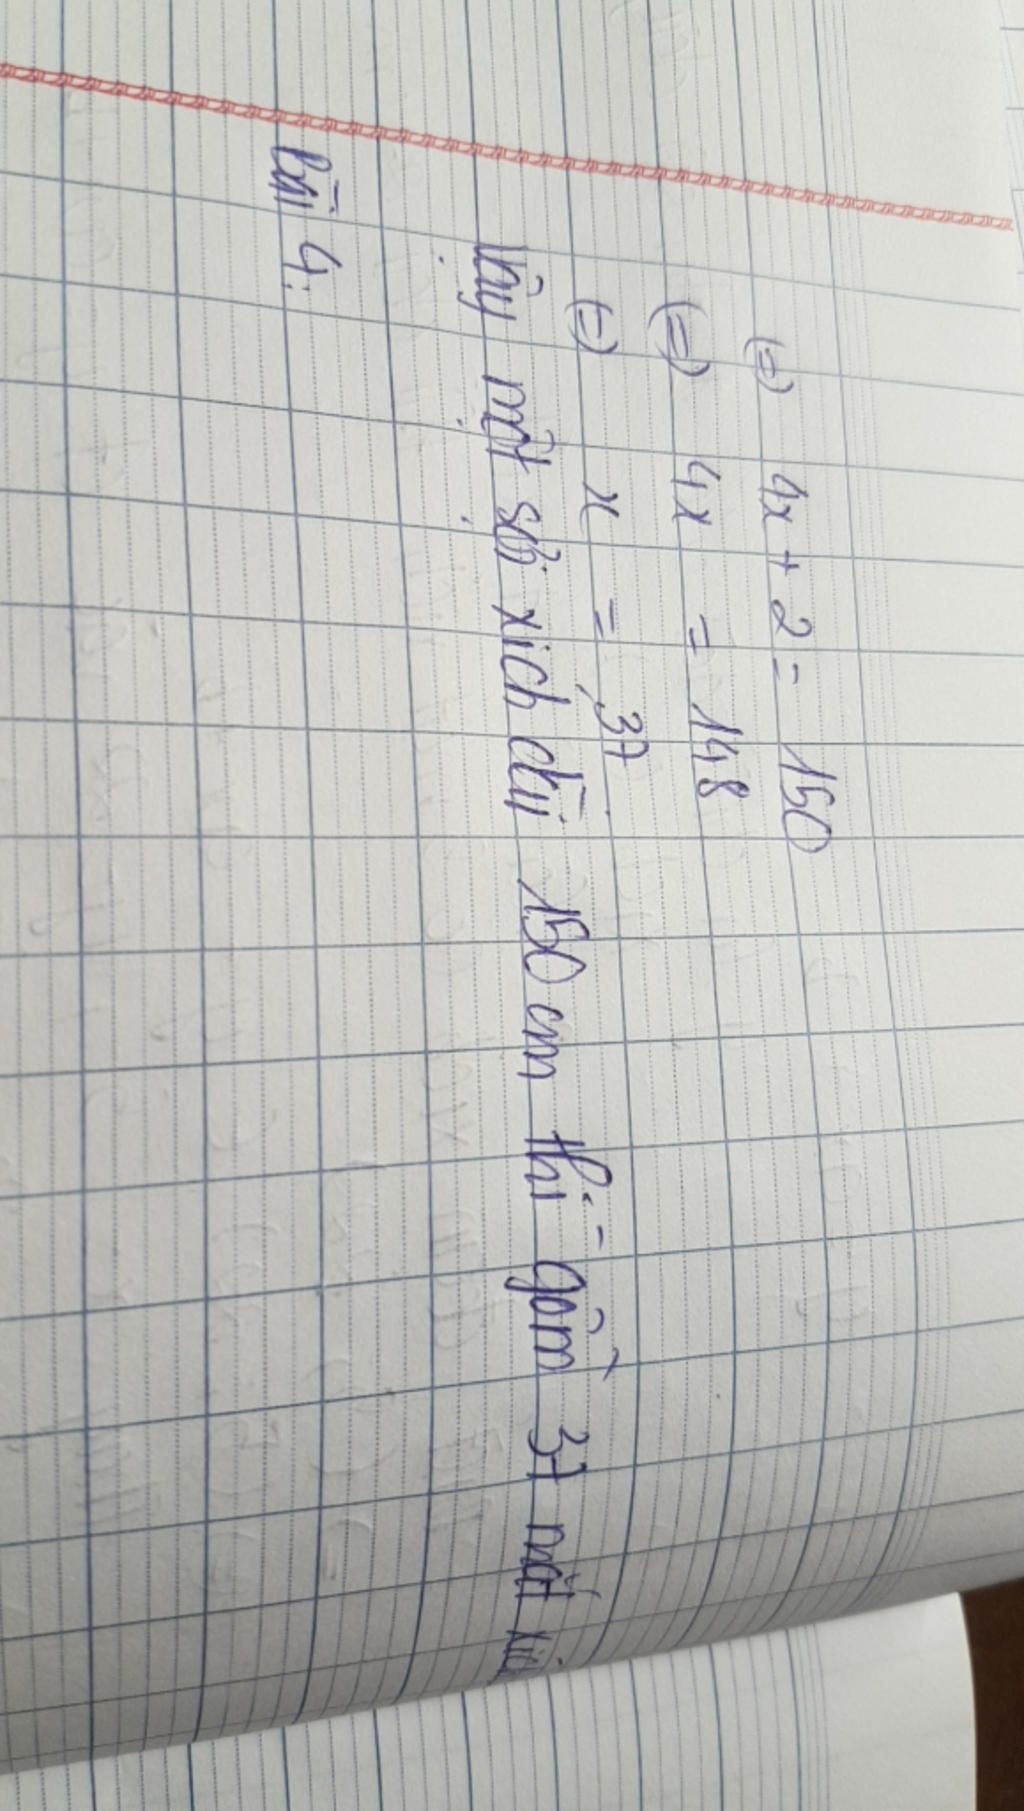 (=) 4x + 2 = 150
(=) 4x = 148
(=) x = 37
Vậy một sợi xích dài 150 cm thì gồm 37 mắt xích
Bài 4: